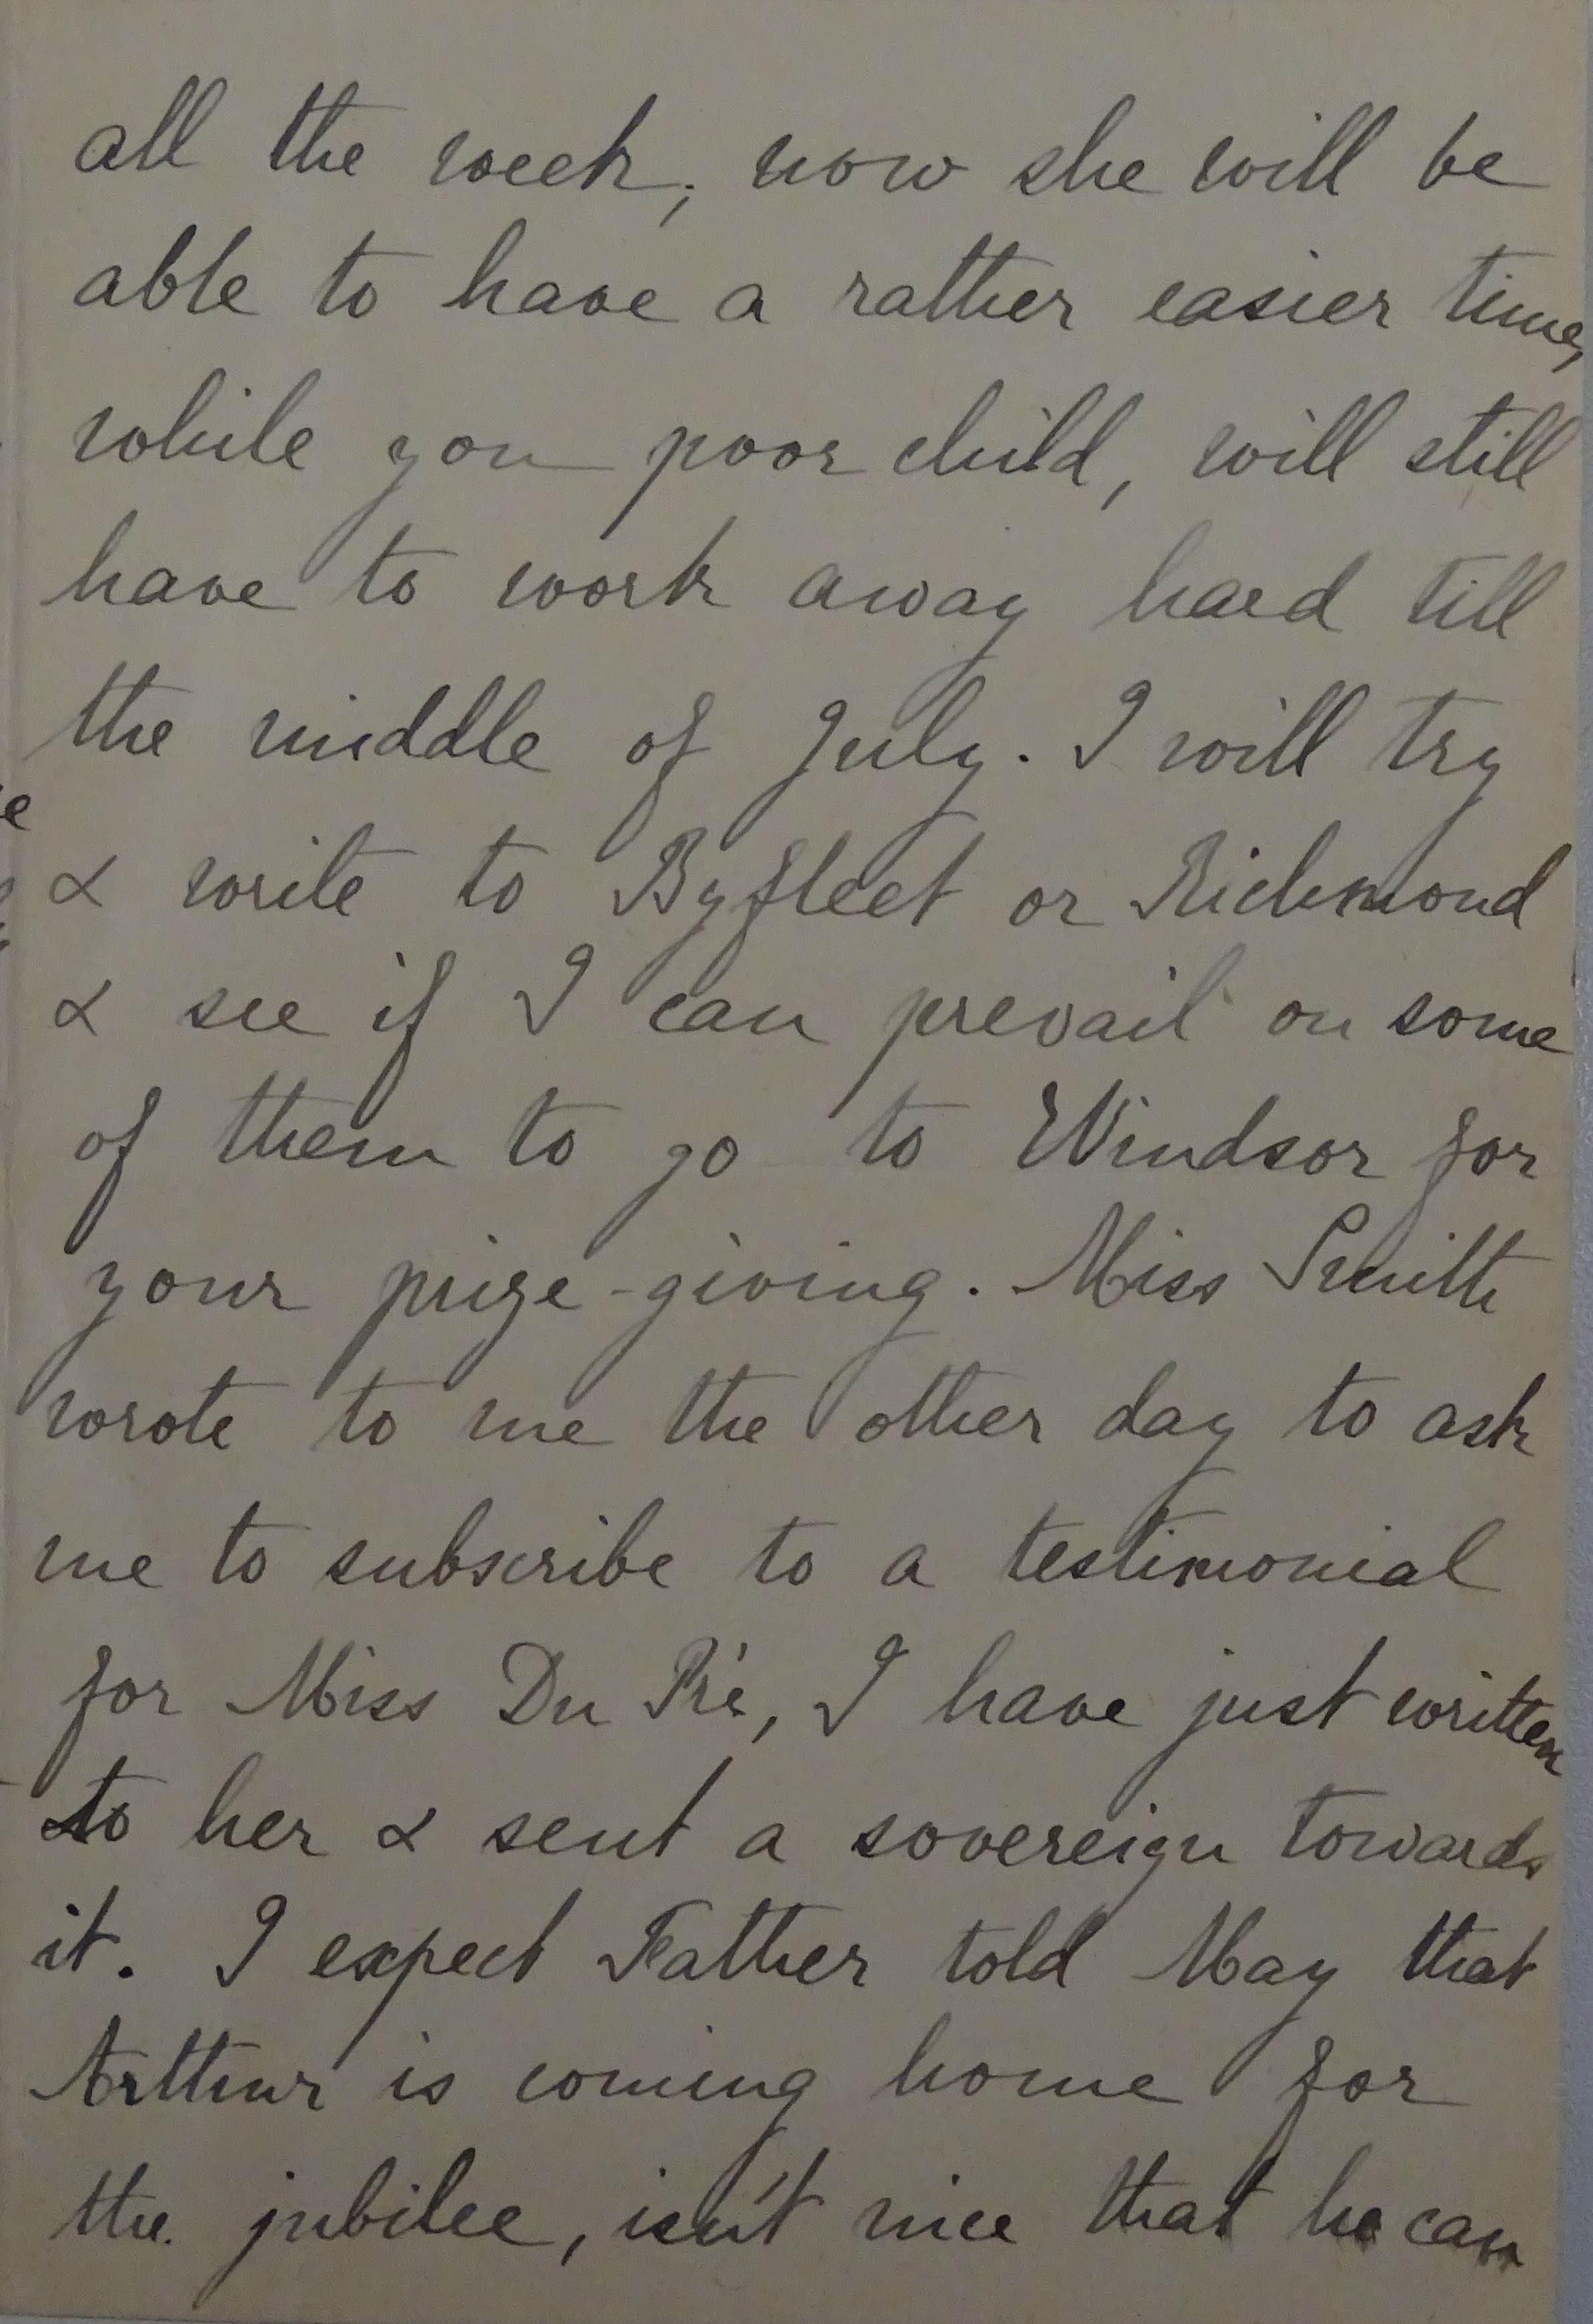 all the week, now she will be
able to have a rather easier time,
while you poor child, will still
have to work away hard till
the middle of July. I will try
& write to Byfleet or Richmond
& see if I can prevail on some
of them to go to Windsor for
your prize-giving. Miss Smith
wrote to me the other day to ask
me to subscribe to a testimonial
for Miss Du Pré, I have just written
to her & sent a sovereign towards
it. I expect Father told May that
Arthur is coming home for
the jubilee, isn't nice that he can